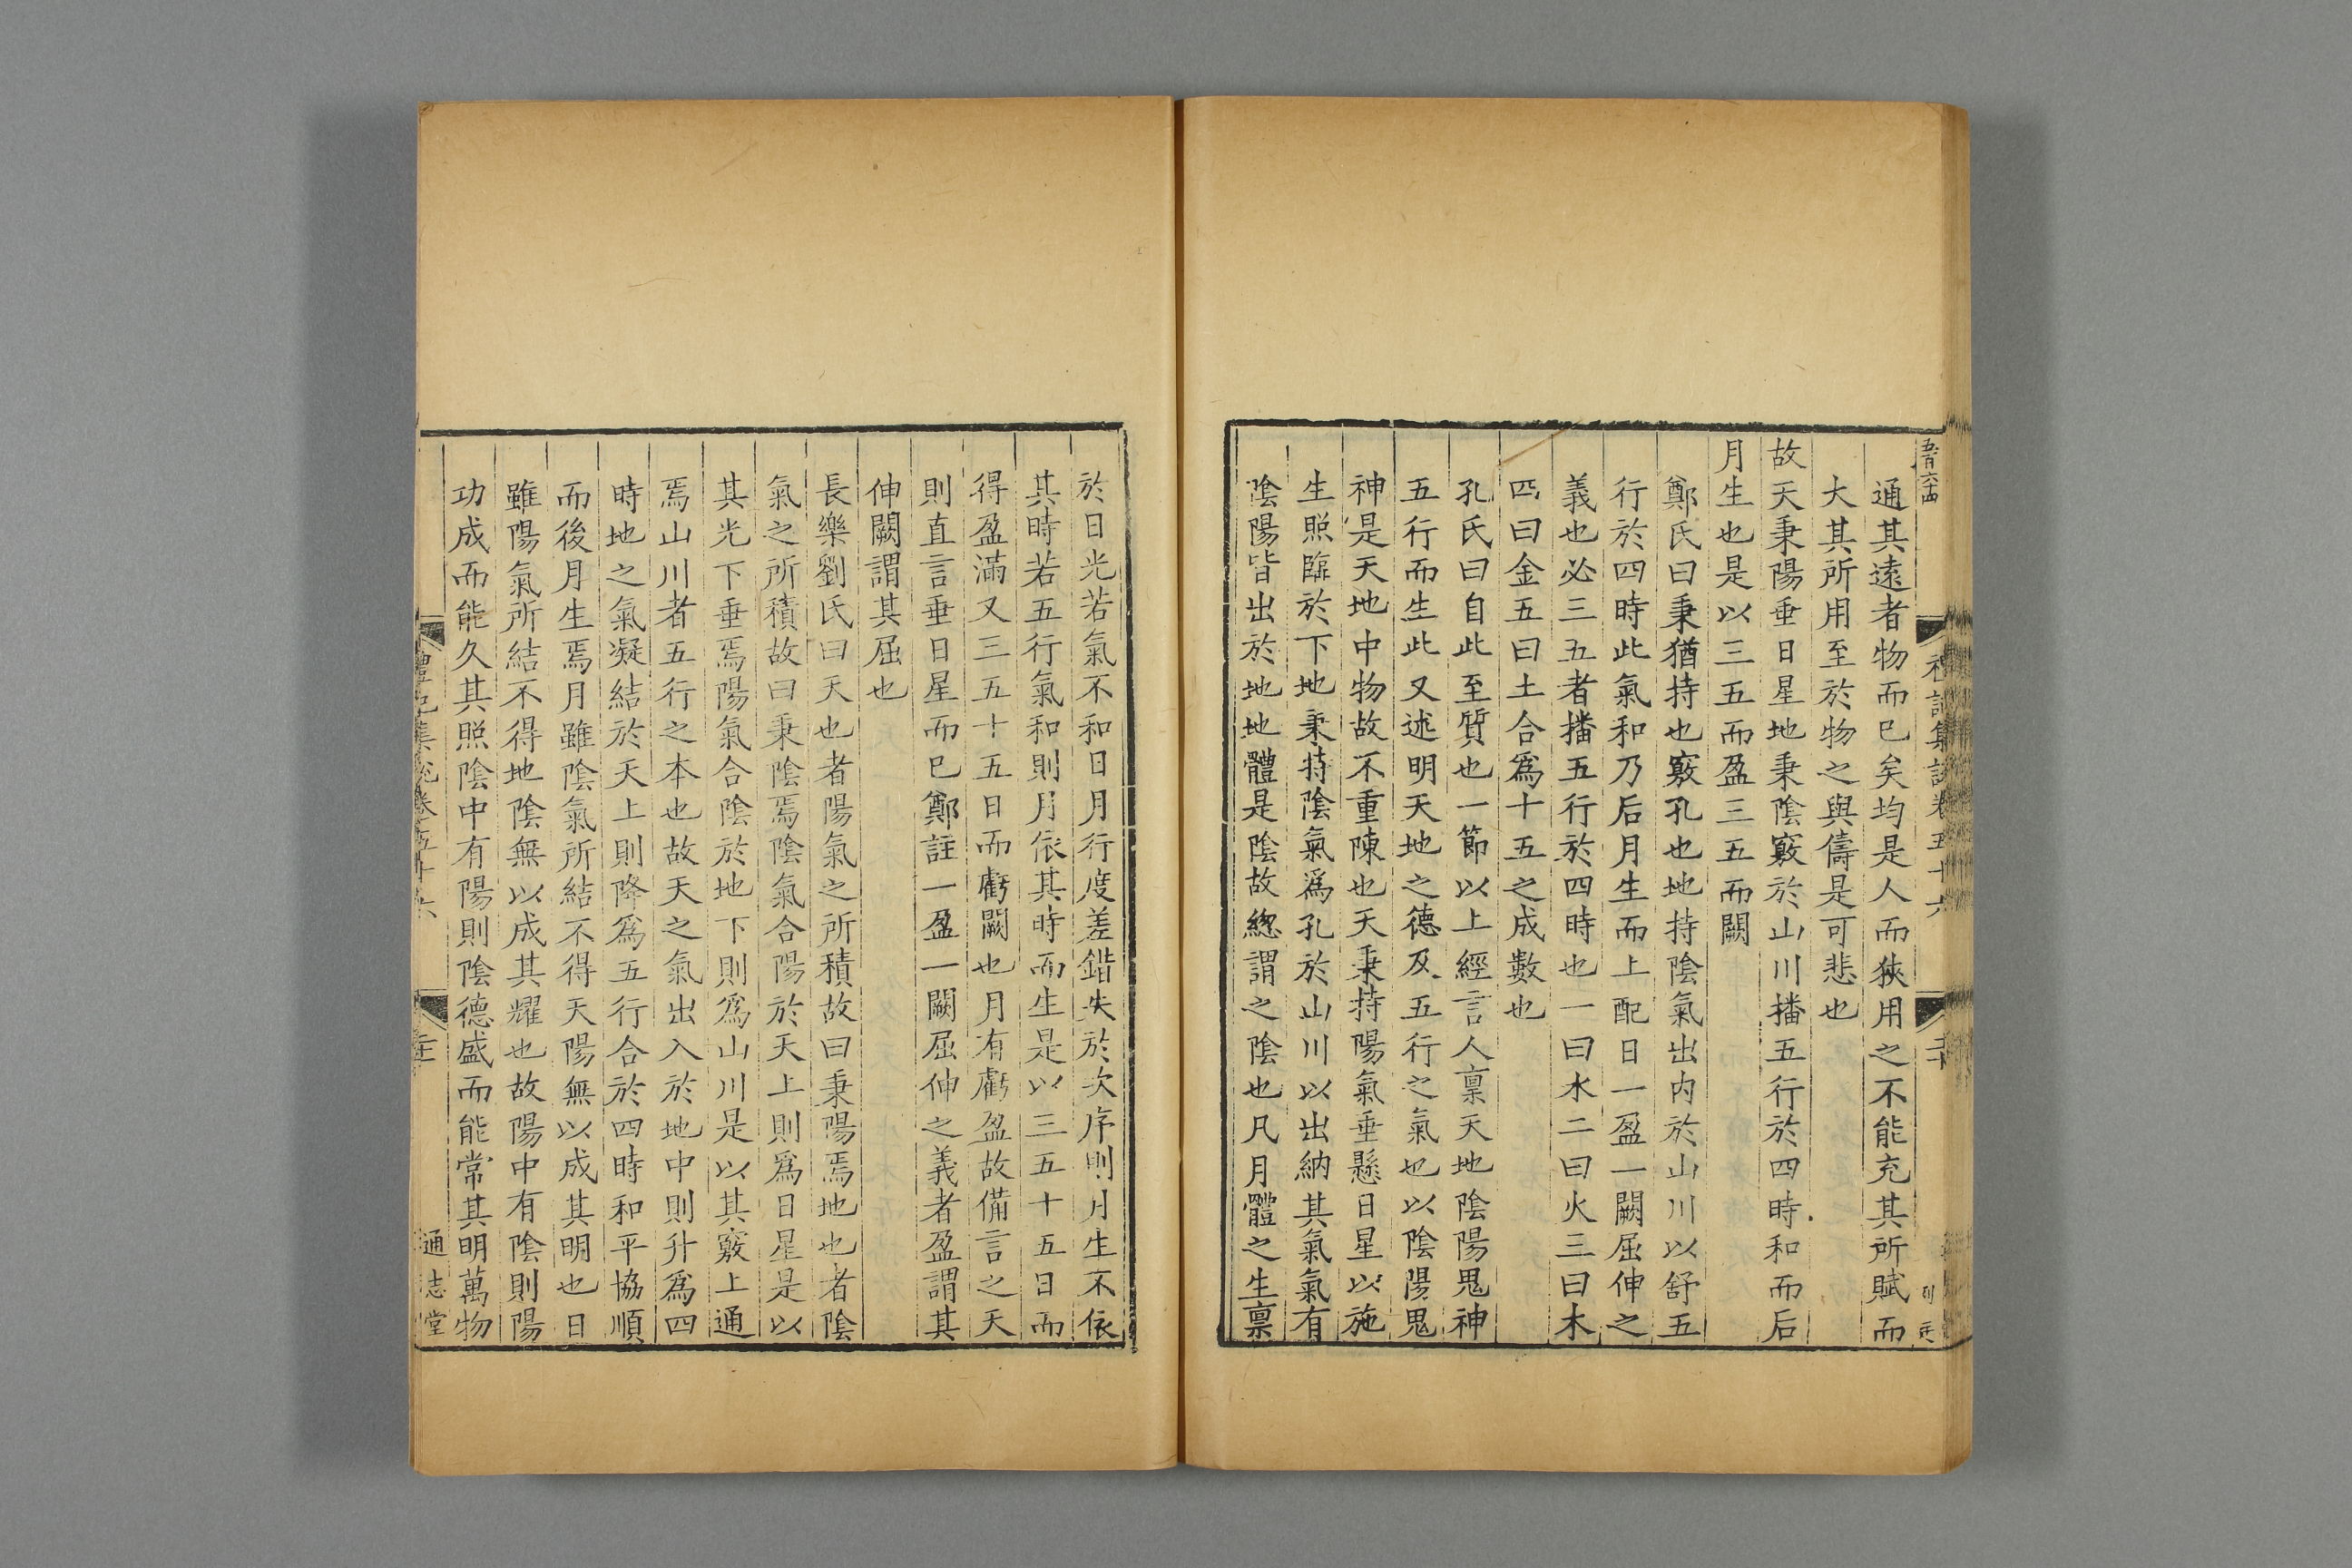 通其遠者物而已矣均是人而狹用之不能充其所賦而
大其所用至於物之與儔是可悲也
故天秉陽垂日星地秉陰竅於山川播五行於四時和而后
月生也是以三五而盈三五而闕
鄭氏曰秉猶持也竅孔也地持陰氣出内於山川以舒五
行於四時此氣和乃后月生而上配日一盈一闕屈伸之
義也必三五者播五行於四時也一曰水二曰火三曰木
四曰金五曰土合爲十五之成數也
孔氏曰自此至質也一節以上經言人稟天地陰陽鬼神
五行而生此又述明天地之德及五行之氣也以陰陽鬼
神是天地中物故不重陳也天秉持陽氣垂懸日星以施
生照臨於下地秉持陰氣爲孔於山川以出納其氣氣有
陰陽皆出於地地體是陰故緫謂之陰也凡月體之生稟
於日光若氣不和日月行度差錯失於次序則月生不依
其時若五行氣和則月依其時而生是以三五十五日而
得盈滿又三五十五日而虧闕也月有虧盈故備言之天
則直言垂日星而已鄭註一盈一闕屈伸之義者盈謂其
伸闕謂其屈也
長樂劉氏曰天也者陽氣之所積故曰秉陽焉地也者陰
氣之所積故曰秉陰焉陰氣合陽於天上則爲日星是以
其光下垂焉陽氣合陰於地下則爲山川是以其竅上通
焉山川者五行之本也故天之氣出入於地中則升爲四
時地之氣凝結於天上則降爲五行合於四時和平協順
而後月生焉月雖陰氣所結不得天陽無以成其明也日
雖陽氣所結不得地陰無以成其耀也故陽中有陰則陽
功成而能久其照陰中有陽則陰德盛而能常其明萬物
禮記集說卷五十六
通志堂